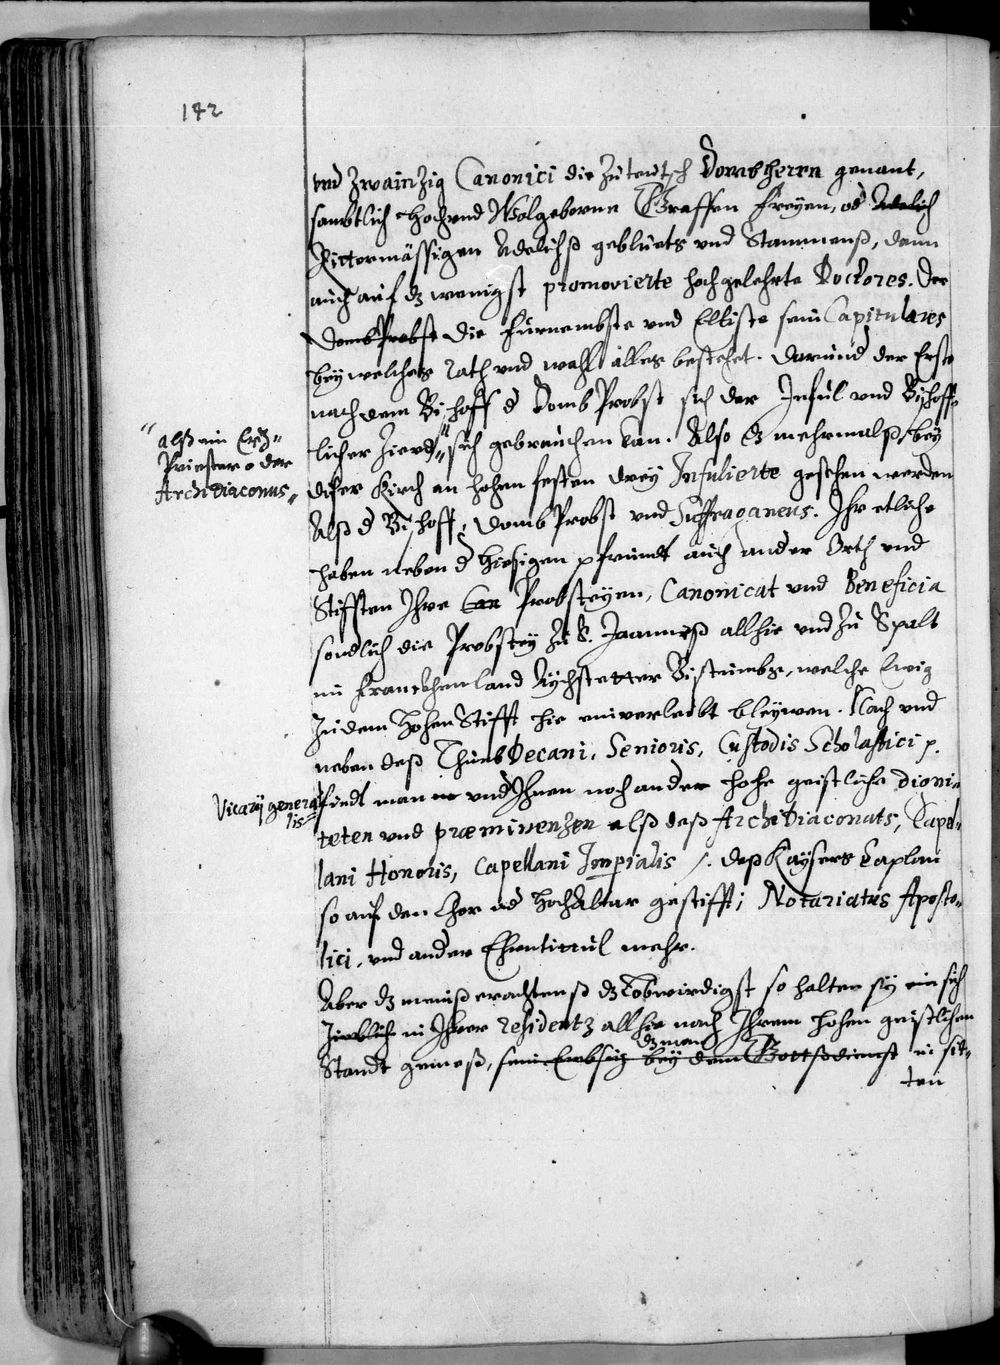 142
vnd zwainzig Canonici die zu teutsch Dombherrn genant,
sambtlich Hoch vnd Wolgeborne Graffen Freyen, od Adelich
Rittermässigen Adelichß geblüets vnd Stammenß, dann
auch auf dz wenigst promovierte hochgelehrte Doctores. Der
Domb Probst die fürnembste vnd Eltiste sein Capitulares
bey welches rath vnd wahl alles bestehet. Darund der Erste
nach dem Bischoff d Domb Probst sich der Inful vnd Bischoff-
licher Zierd " sich gebrauchen kan. Also dz mehrmalß bey
" alß ein Ertz-
Priester oder
Archidiaconus "
diser Kirch an hohen festen drey Infulierte gesehen werden
Alß d Bischoff, Domb Probst vnd Suffraganeus. Ihr etliche
haben neben d hiesigen pfründt auch ander Orth vnd
Stifften Ihre Can Probsteyen, Canonicat vnd Beneficia
sondlich die Probstey zu S. Joanneß allhie vnd zu Spalt
in Franckhenland Aychstetter Bistumbs, welche Ewig
zu dem Hohen Stifft hie einverleibt bleyben. Nach vnd
neben deß Thumb Decani, Senioris, Custodis Scholastici p.
Vicarij genera-
lis
findt man vnd Ihnen noch ander hohe geistliche digni-
teten vnd præminenzen alß deß Archidiaconats, Capel-
lani Honoris, Capellani Imperialis /. deß Kaysers Caplan
so auf den Chor vd Hochaltar gestifft; Notariatus Aposto-
lici, vnd ander Ehrntittul mehr.
Aber dz meinß erachtenß dz Lobwirdigst so halten sy ein sich
Zierlich in Ihrer residentz allhie nach Ihrem hohen geistlichen
dz man
Standt gemeß, sein Embsig bey dem Gottßdienst in sit-
ten